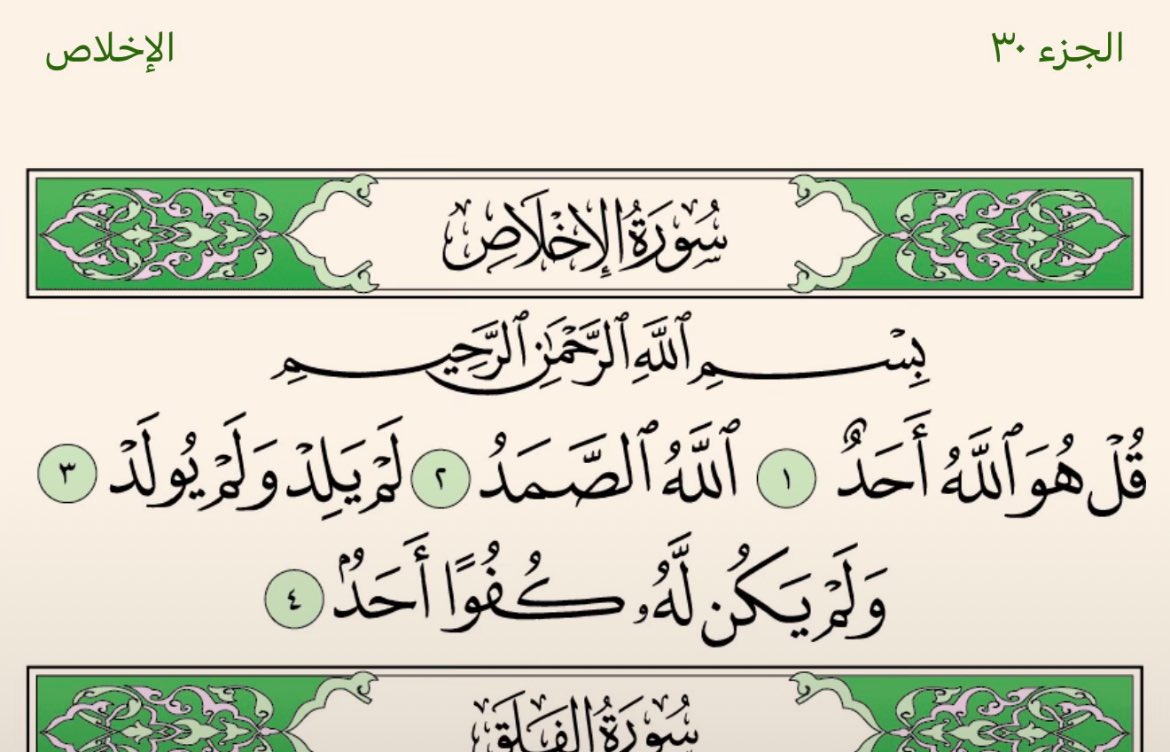 الجزء ٣٠
الإخلاص
سُورَةُ الإِخْلَاصِ
بِسْمِ ٱللَّهِ ٱلرَّحْمَٰنِ ٱلرَّحِيمِ
قُلْ هُوَ ٱللَّهُ أَحَدٌ ١ ٱللَّهُ ٱلصَّمَدُ ٢ لَمْ يَلِدْ وَلَمْ يُولَدْ ٣
وَلَمْ يَكُن لَّهُۥ كُفُوًا أَحَدٌۢ ٤
سُورَةُ الفَلَقِ